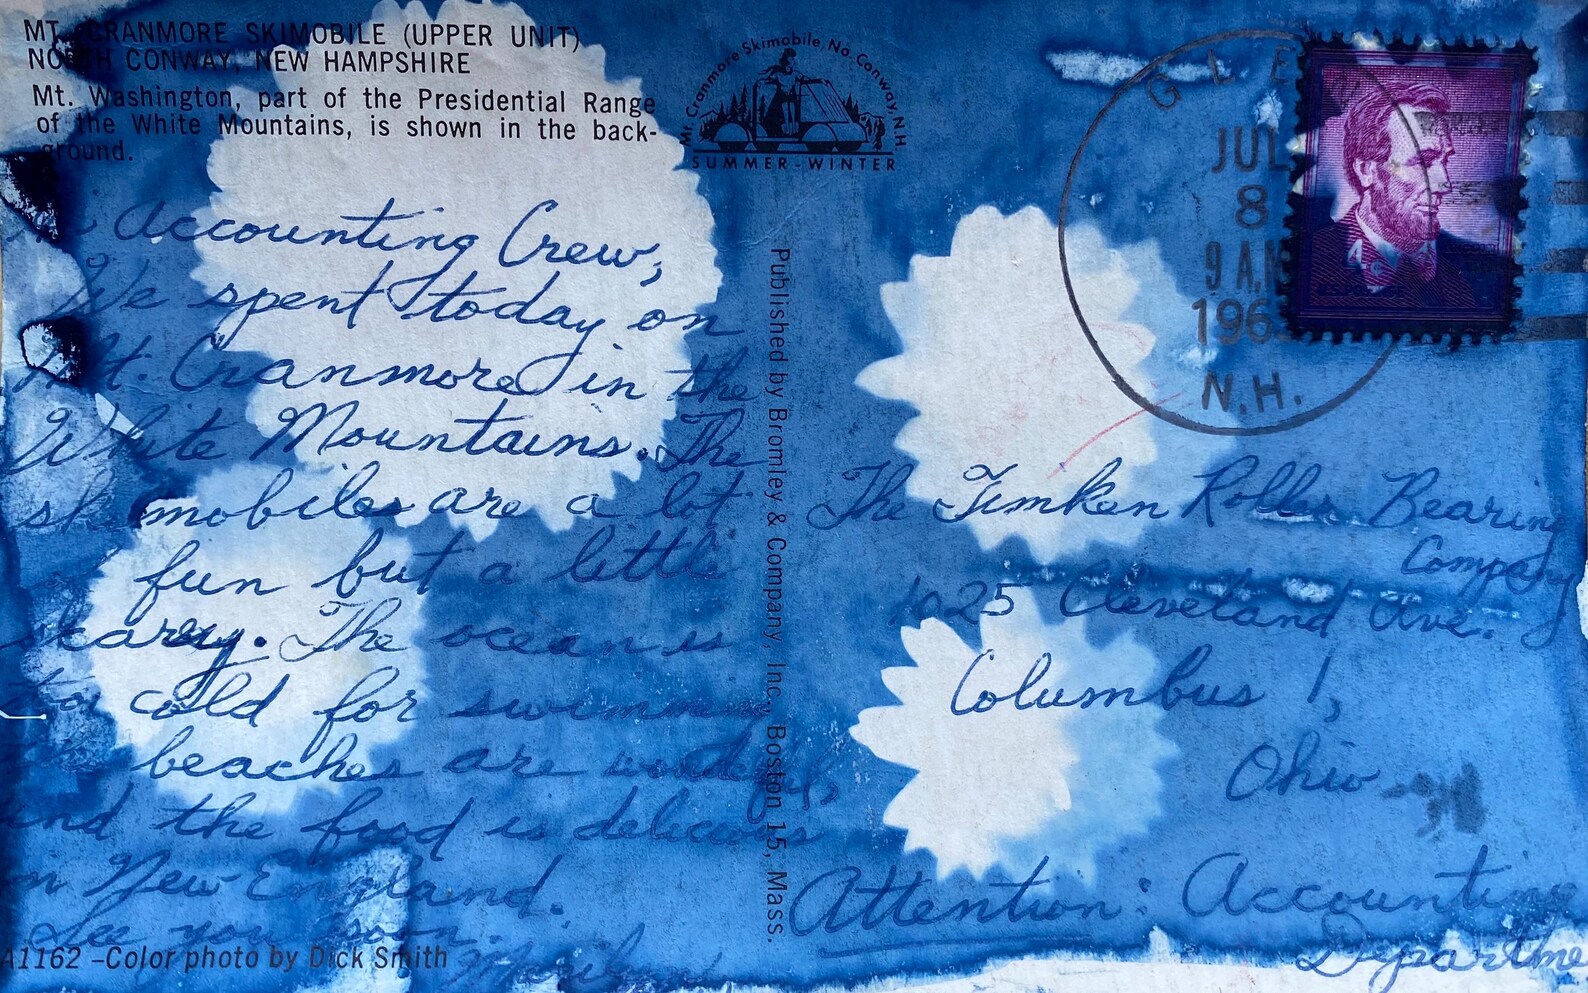 MT. CRANMORE SKIMOBILE (UPPER UNIT)
NORTH CONWAY, NEW HAMPSHIRE
Mt. Washington, part of the Presidential Range
of the White Mountains, is shown in the back-
ground.
Accounting Crew,
We spent today on
Mt. Cranmore in the
White Mountains. The
skimobiles are a lot
fun but a little
skarey. The ocean is
too cold for swimming
beaches are wonderful,
and the food is delicious
in New England.
See you soon.
Marilyn
A1162 –Color photo by Dick Smith
Mt. Cranmore Skimobile, No. Conway, N.H.
SUMMER-WINTER
Published by Bromley & Company, Inc., Boston 15, Mass.
GLEN
JUL
8
9 A.M
196
N.H.
The Timken Roller Bearing
Company
1025 Cleveland Ave.
Columbus 1,
Ohio
Attention: Accounting
Departme